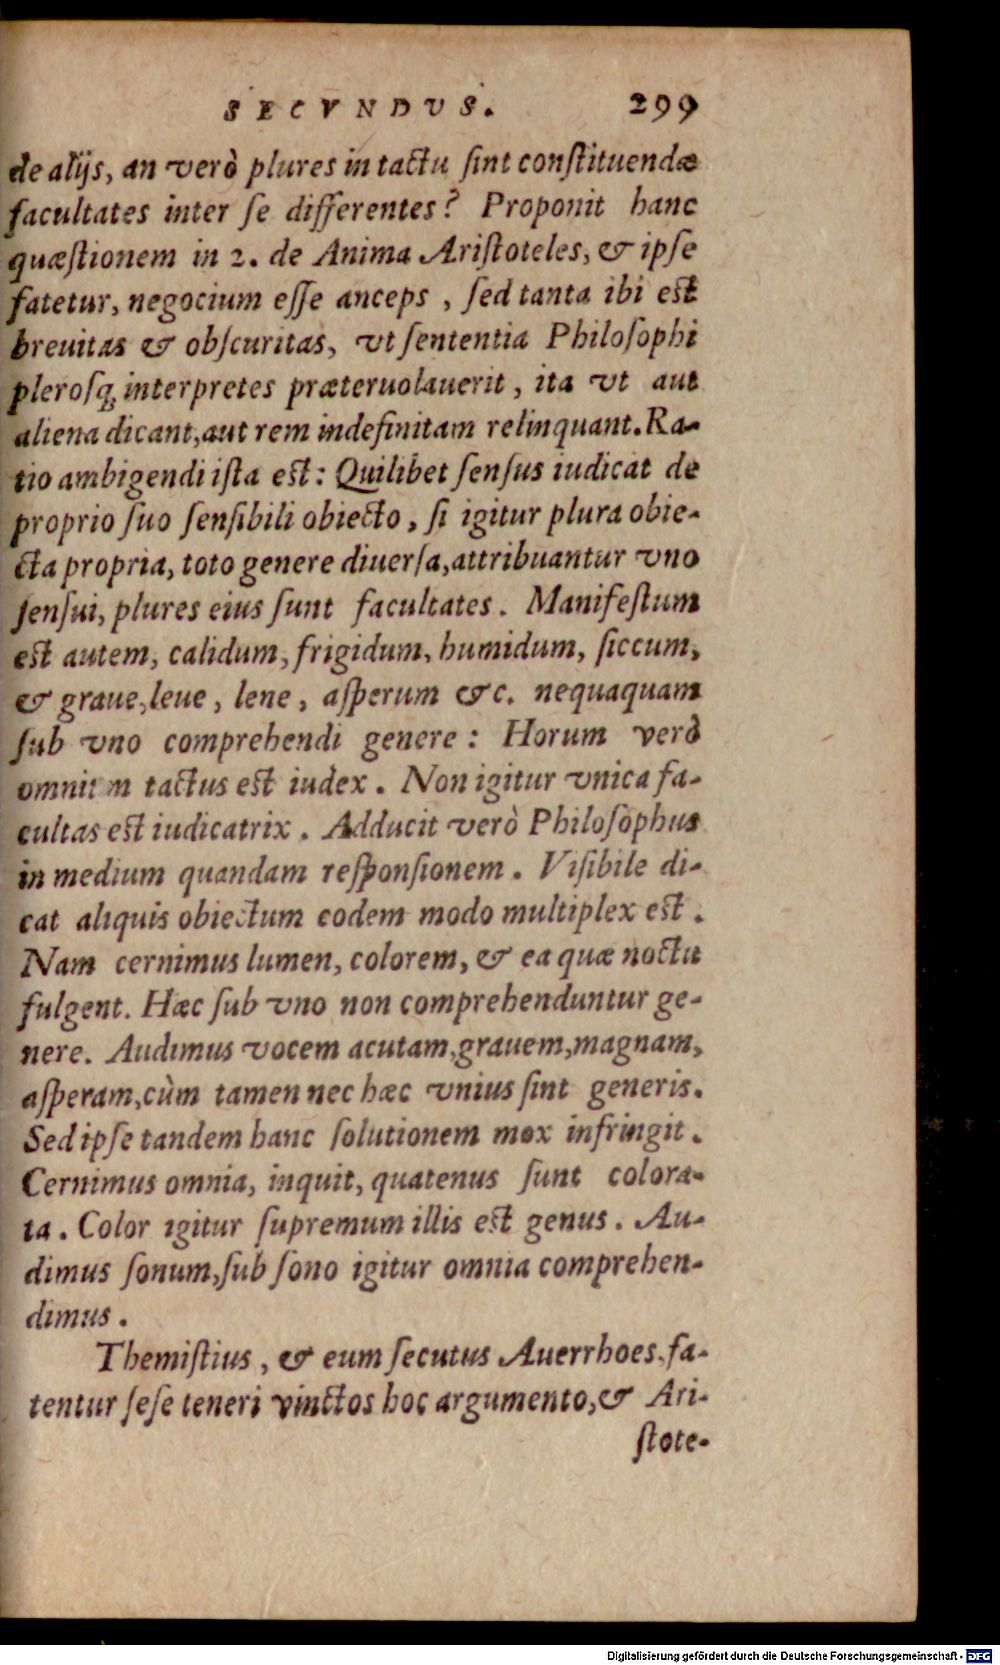 SECVNDVS. 299
de alijs, an verò plures in tactu ſint conſtituendæ
facultates inter ſe differentes? Proponit hanc
quæſtionem in 2. de Anima Ariſtoteles, & ipſe
fatetur, negocium eſſe anceps, ſed tanta ibi eſt
breuitas & obſcuritas, vt ſententia Philoſophi
pleroſq́; interpretes præteruolauerit, ita vt aut
aliena dicant, aut rem indefinitam relinquant. Ra-
tio ambigendi iſta eſt: Quilibet ſenſus iudicat de
proprio ſuo ſenſibili obiecto, ſi igitur plura obie-
cta propria, toto genere diuerſa, attribuantur vno
ſenſui, plures eius ſunt facultates. Manifeſtum
eſt autem, calidum, frigidum, humidum, ſiccum,
& graue, leue, lene, aſperum &c. nequaquam
ſub vno comprehendi genere: Horum verò
omnium tactus eſt iudex. Non igitur vnica fa-
cultas eſt iudicatrix. Adducit verò Philoſophus
in medium quandam reſponſionem. Viſibile di-
cat aliquis obiectum eodem modo multiplex eſt.
Nam cernimus lumen, colorem, & ea quæ noctu
fulgent. Hæc ſub vno non comprehenduntur ge-
nere. Audimus vocem acutam, grauem, magnam,
aſperam, cùm tamen nec hæc vnius ſint generis.
Sed ipſe tandem hanc ſolutionem mox infringit.
Cernimus omnia, inquit, quatenus ſunt colora-
ta. Color igitur ſupremum illis eſt genus. Au-
dimus ſonum, ſub ſono igitur omnia comprehen-
dimus.
Themiſtius, & eum ſecutus Auerrhoes, fa-
tentur ſeſe teneri vinctos hoc argumento, & Ari-
ſtote-
Digitalisierung gefördert durch die Deutsche Forschungsgemeinschaft - DFG